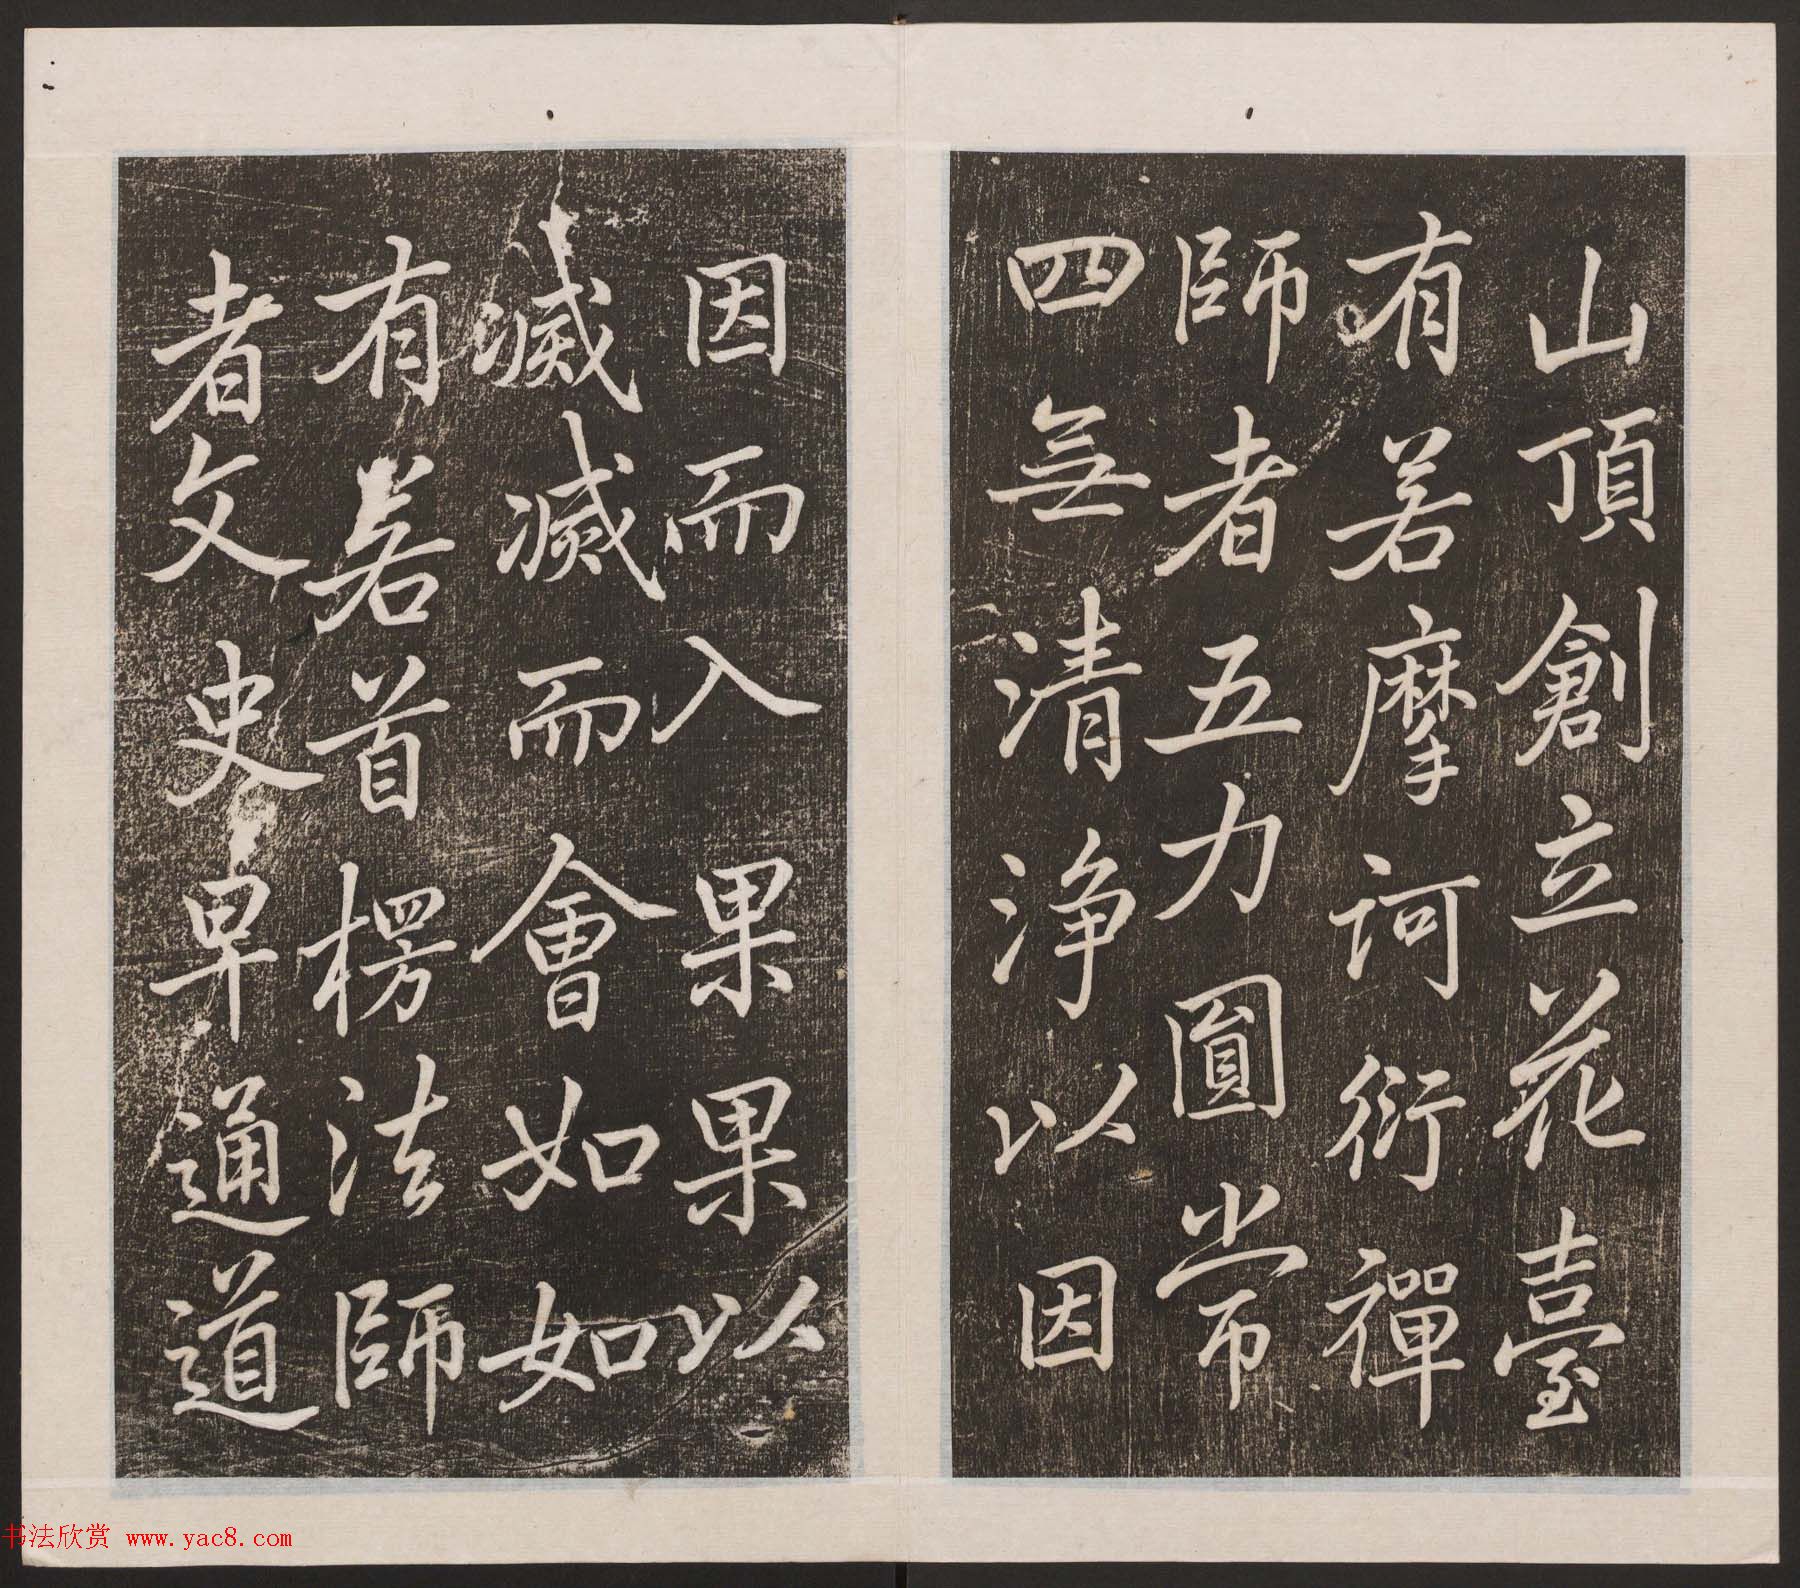 山頂創立花臺
有若摩訶衍禪
師者五力圓常
四無清淨以因
因而入果果以
滅滅而會如如
有若首楞法師
者文史早通道
书法欣赏 www.yac8.com